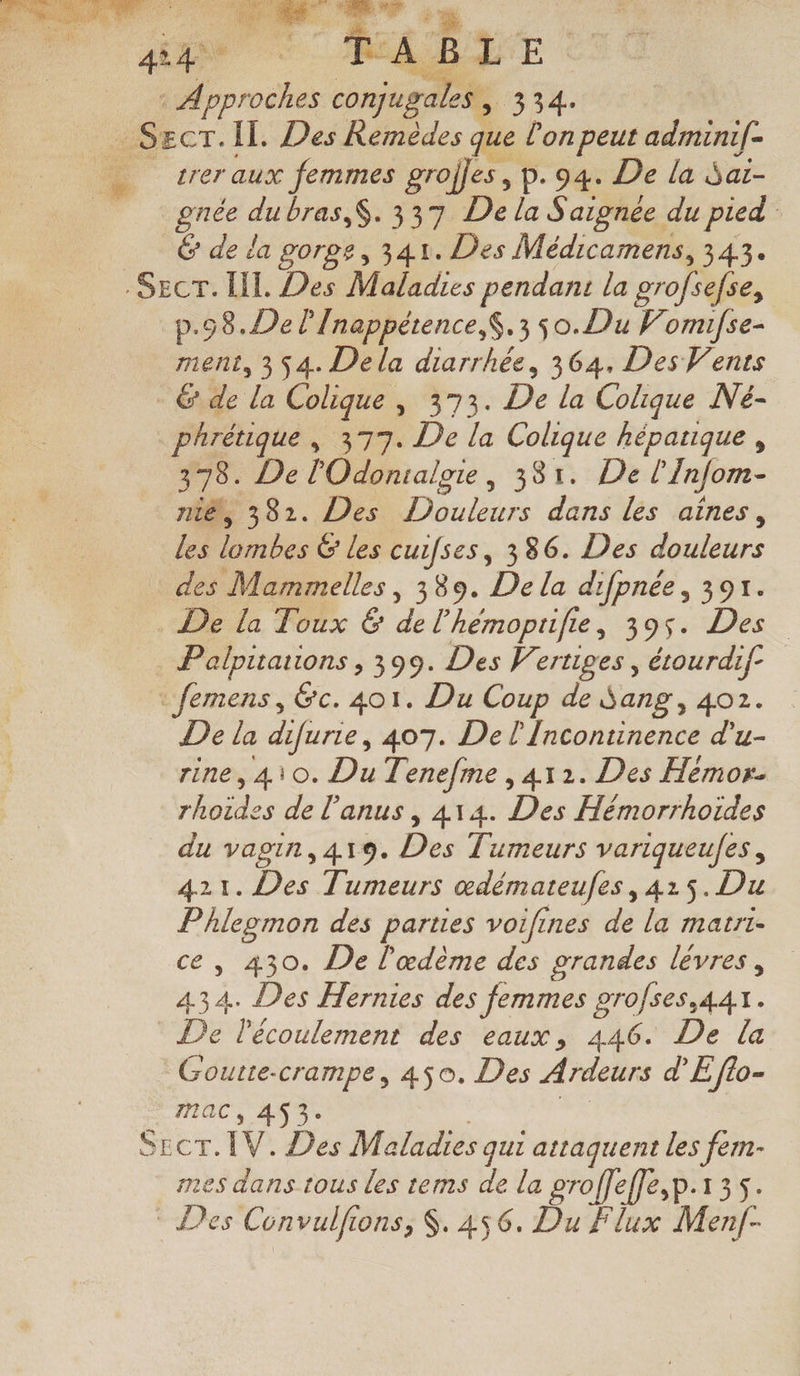 424 TABLE
Approches conjugales, 334.
SECT. II. Des Remèdes que l'on peut adminiſ-
trer aux femmes groſſes, p. 94. De la Sai-
gnée du bras, §. 337 De la Saignée du pied
& de la gorge, 341. Des Médicamens, 343.
SECT. III. Des Maladies pendant la groſseſse,
p. 98. De l'Inappétence, §. 350. Du Vomiſse-
ment, 354. De la diarrhée, 364, Des Vents
& de la Colique, 373. De la Colique Né-
phrétique, 377. De la Colique hépatique,
378. De l'Odontalgie, 381. De l'Inſom-
nie, 382. Des Douleurs dans les aînes,
les lombes & les cuiſses, 386. Des douleurs
des Mammelles, 389. De la diſpnée, 391.
De la Toux & de l'hémoptiſie, 395. Des
Palpitations, 399. Des Vertiges, étourdiſ-
ſemens, &c. 401. Du Coup de Sang, 402.
De la diſurie, 407. De l'Incontinence d'u-
rine, 410. Du Teneſme, 412. Des Hémor-
rhoïdes de l'anus, 414. Des Hémorrhoïdes
du vagin, 419. Des Tumeurs variqueuſes,
421. Des Tumeurs œdémateuſes, 425. Du
Phlegmon des parties voiſines de la matri-
ce, 430. De l'œdème des grandes lévres,
434. Des Hernies des femmes groſses, 441.
De l'écoulement des eaux, 446. De la
Goutte-crampe, 450. Des Ardeurs d'Eſto-
mac, 453.
SECT. IV. Des Maladies qui attaquent les fem-
mes dans tous les tems de la groſſeſſe, p. 135.
Des Convulſions, §. 456. Du Flux Menſ-